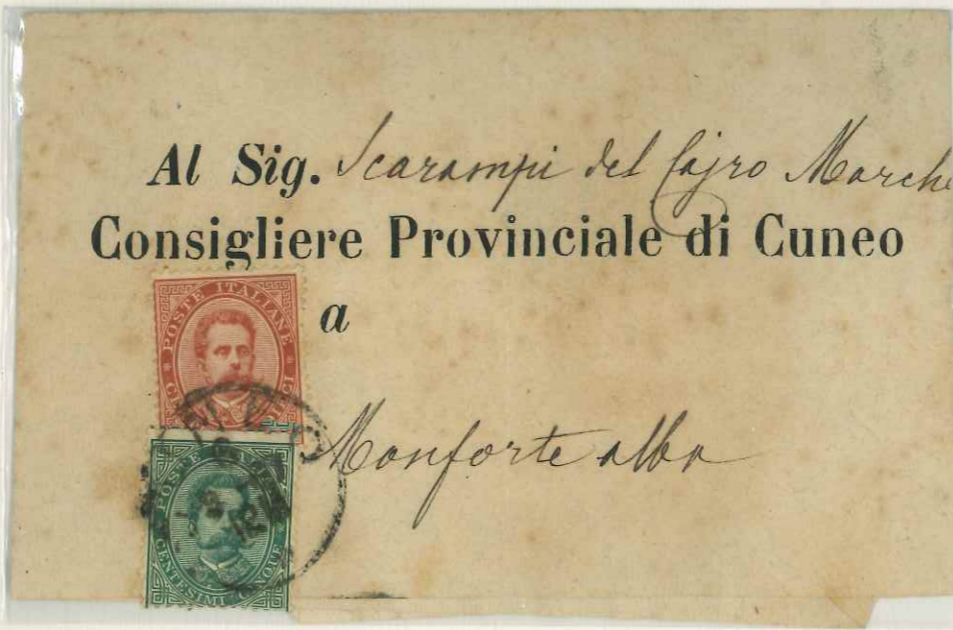 Al Sig. Scarampi del Cajro Marche
Consigliere Provinciale di Cuneo
a
Monforte alba
POSTE ITALIANE
POSTE ITAL
CENTESIMI CINQUE